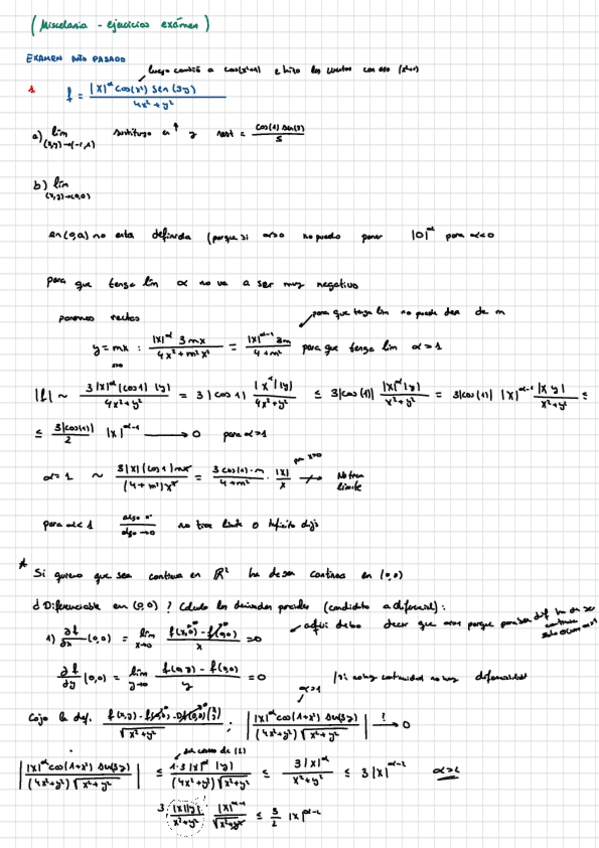 (Miscelania - ejercicios exámen)
EXAMEN AÑO PASADO
luego cambió a cos(x²+1) e hizo las cuentas con eso (x²+1)
1 f = |x|^α cos(x²) sen(3y) / 4x²+y²
a) lim (x,y)→(-1,1) sustituyo en ↑ y = cos(1) sen(3) / 5
b) lim (x,y)→(0,0)
en (0,a) no esta definida (porque si α>0 no puedo poner |0|^α para α<0
para que tenga lím α no va a ser muy negativo
ponemos rectas para que tenga lím no puede dep de m
y = mx : |x|^α 3mx / 4x²+m²x² = |x|^α-1 3m / 4+m² para que tenga lím α>1
|f| ~ 3|x|^α |cos1| |y| / 4x²+y² = 3|cos1| |x^α||y| / 4x²+y² ≤ 3|cos(1)| |x|^α|y| / x²+y² = 3|cos(1)| |x|^α-1 |x y| / x²+y² ≤
≤ 3|cos(1)| / 2 |x|^α-1 → 0 para α>1
α=1 ~ 3|x|(cos1)mx / (4+m²)x² = 3cos(1)·m / 4+m² · |x| / x No tiene límite
para α<1 algo / algo→0 no tiene límite o infinito
* Si quiero que sea continua en ℝ² ha de ser continua en (0,0)
¿Diferenciable en (0,0)? Calculo las derivadas parciales (candidato a diferencial):
1) ∂f/∂x (0,0) = lim x→0 f(x,0)-f(0,0) / x = 0 aquí debo decir que porque para ser dif ha de ser continua
∂f/∂y (0,0) = lim y→0 f(0,y)-f(0,0) / y = 0 (si no hay continuidad no hay diferenciabilidad
α>1
Cojo la def. f(x,y)-f(0,0)-Df(0,0)(x y) / √x²+y² ; | |x|^α cos(1+x²) sen(3y) / (4x²+y²)√x²+y² | →? 0
| |x|^α cos(1+x²) sen(3y) / (4x²+y²)√x²+y² | ≤ 1·3|x|^α |y| / (4x²+y²)√x²+y² ≤ 3|x|^α / x²+y² ≤ 3|x|^α-2 α>2
3 |x||y| / x²+y² · |x|^α-1 / √x²+y² ≤ 3/2 |x|^α-2